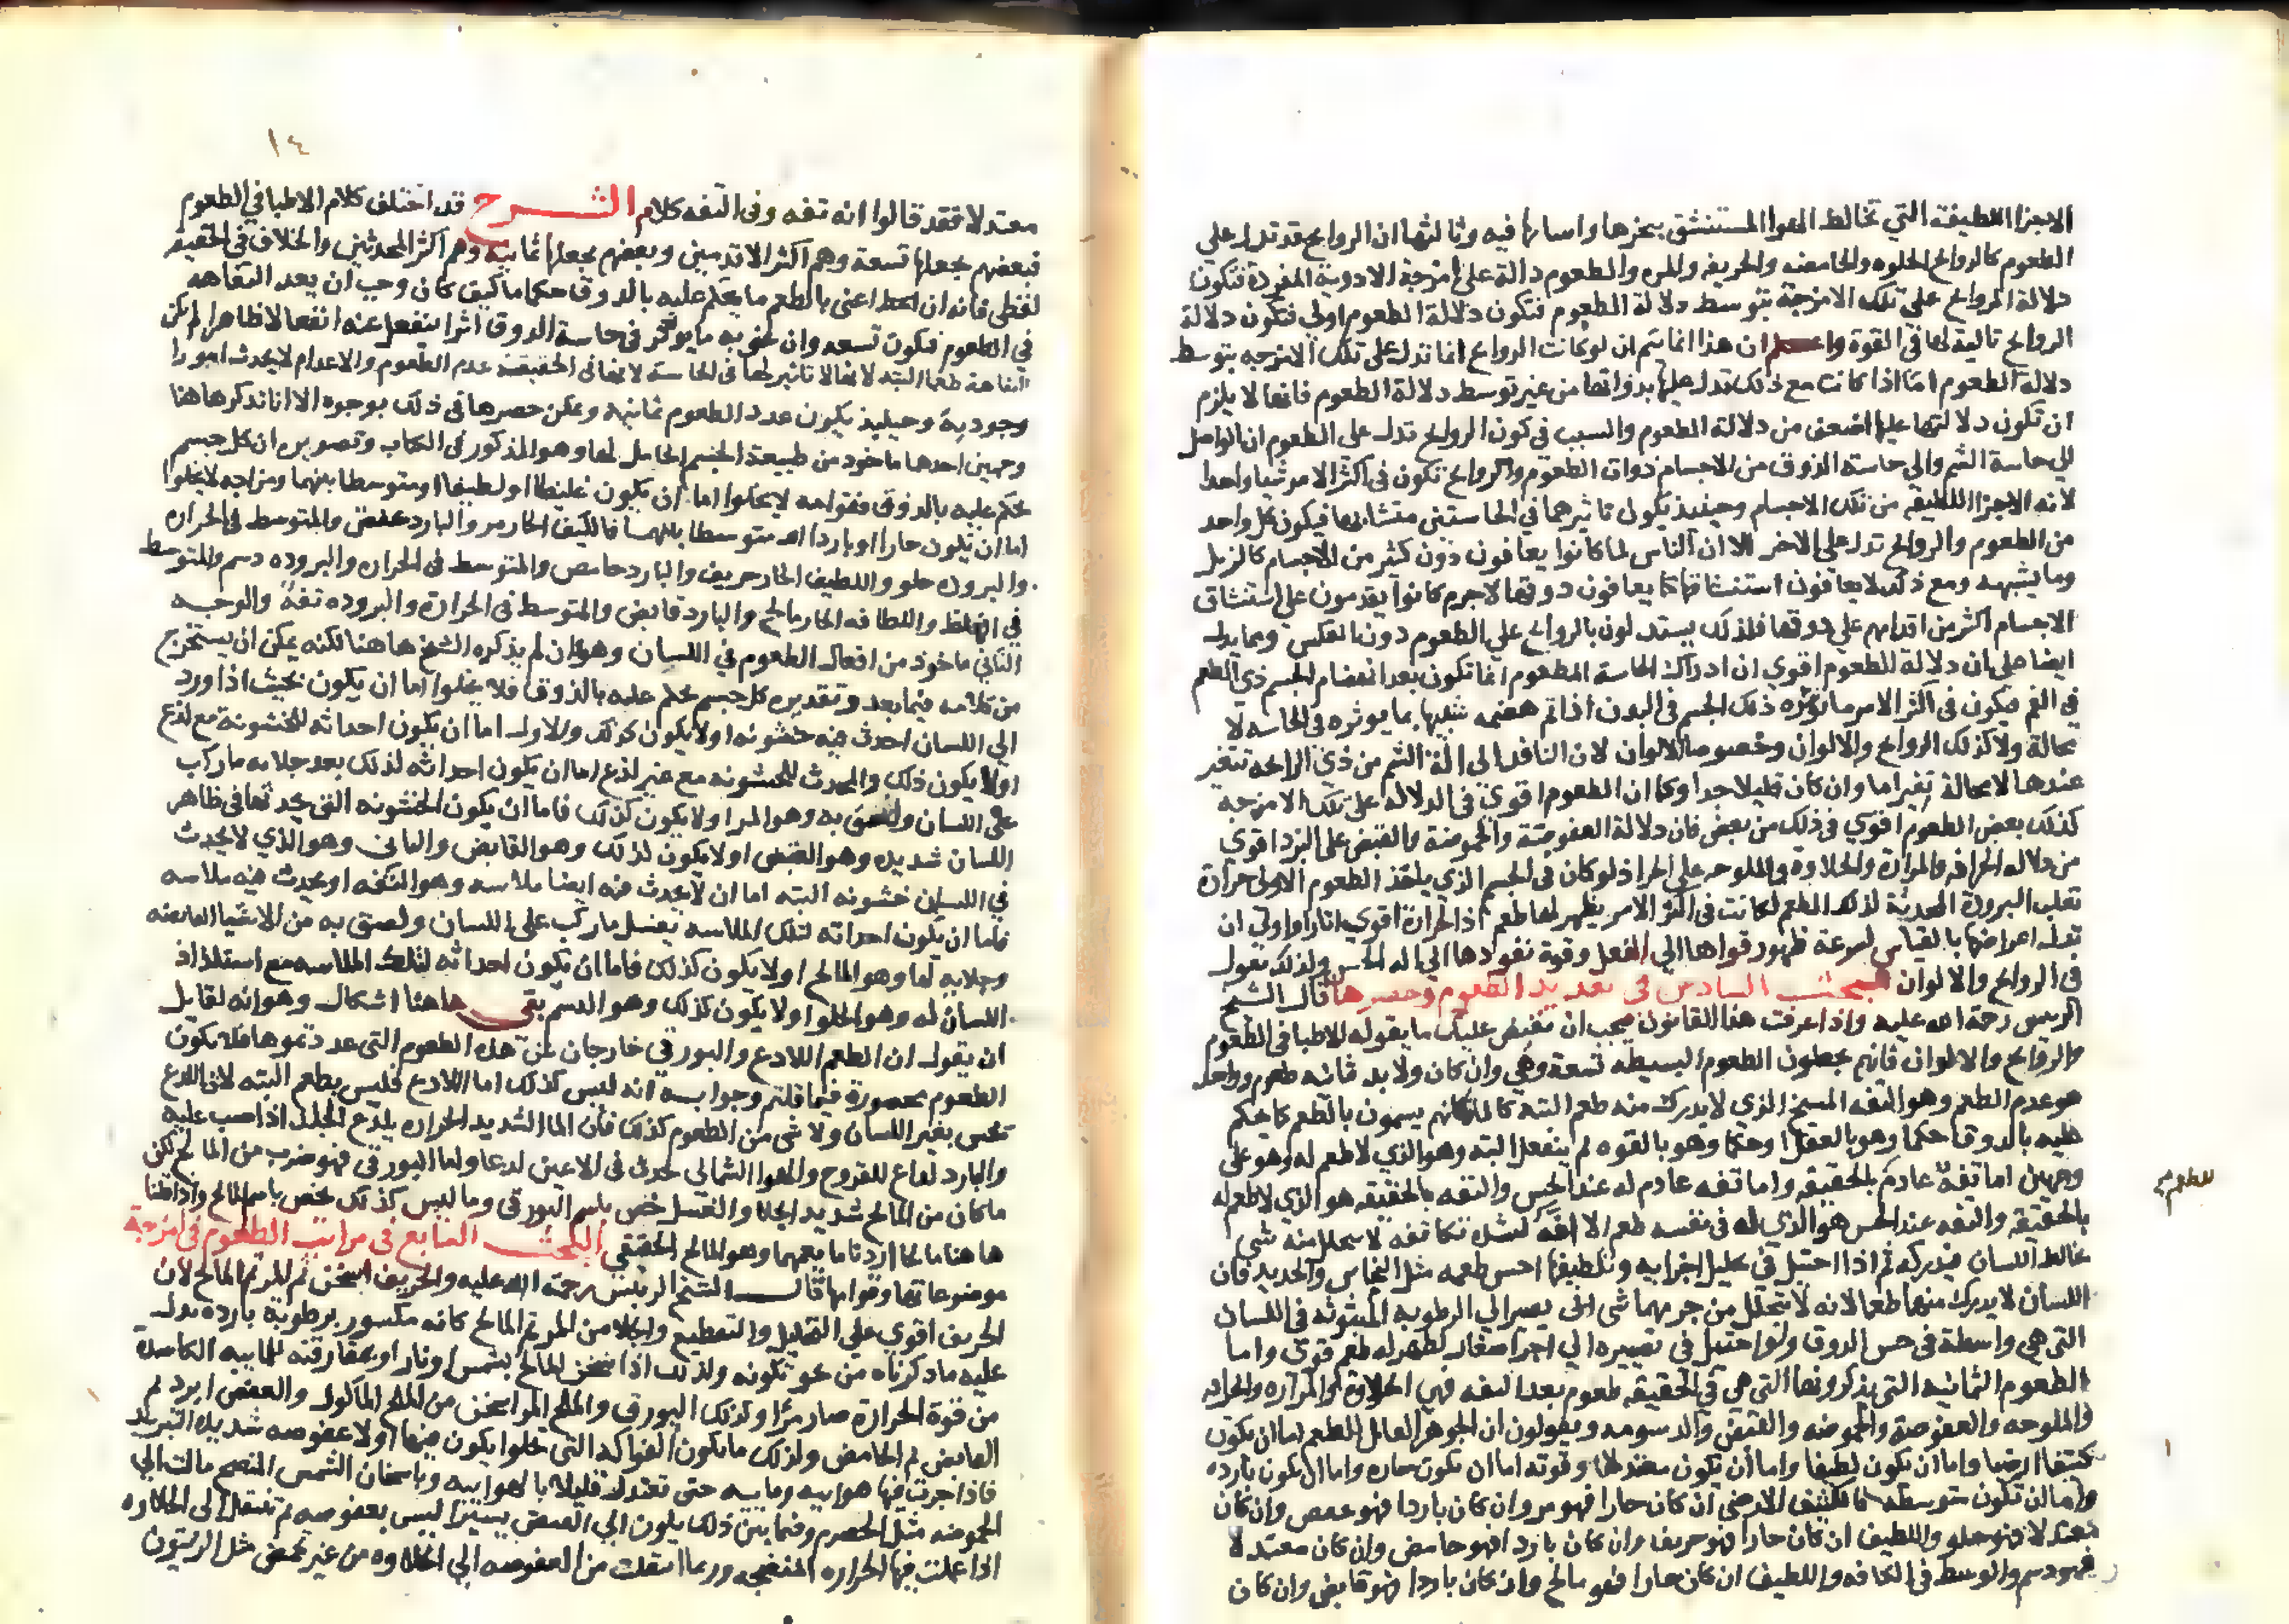 الاجزا اللطيفة التي تخالط الهوا المستنشق ببخرها واسالها فيه وثالثها ان الروايح قد تدل علي
الطعوم كالروايح الحلوه والحامضه والحريفه والمره والطعوم دالة علي امزجة الادوية المفردة فتكون
دلالة الروايح علي تلك الامزجة بتوسط دلالة الطعوم فتكون دلالة الطعوم اولي فتكون دلالة
الروايح تالية لها في القوة واعلم ان هذا انما يتم ان لو كانت الروايح انما تدل علي تلك الامزجه بتوسط
دلالة الطعوم اما اذا كانت مع ذلك تدل عليها بذواتها من غير توسط دلالة الطعوم فانها لا يلزم
ان تكون دلالتها عليها اضعف من دلالة الطعوم والسبب في كون الروايح تدل علي الطعوم ان الواصل
الي حاسة الشم والي حاسة الذوق من الاجسام ذوات الطعوم والروايح تكون في اكثر الامر شيا واحدا
لانه الاجزا اللطيفه من تلك الاجسام وحينيذ يكون تاثيرها في الحاستين متشابها فيكون كل واحد
من الطعوم والروايح تدل علي الاخر الا ان الناس لما كانوا يعافون ذوق كثير من الاجسام كالزبل
وما يشبهه ومع ذلك لا يعافون استنشاقها كما يعافون ذوقها لا جرم كانوا يقدمون علي استنشاق
الاجسام اكثر من اقدامهم علي ذوقها فلذلك يستدلون بالروايح علي الطعوم دون العكس ومما يدل
ايضا علي ان دلالة الطعوم اقوي ان ادراك الحاسة المطعوم انما تكون بعد انهضام الجسم ذي الطعم
في الفم فيكون في اكثر الامر ما يوثره ذلك الجسم في البدن اذا تم هضمه شبيها بما يوثره في الحاسه لا
محالة ولا كذلك الروايح والالوان وخصوصا الالوان لان النافذ الي الة الشم من ذي الرايحه تتغير
عندها لا محالة تغيرا ما وان كان قليلا جدا وكما ان الطعوم اقوي في الدلالة علي تلك الامزجه
كذلك بعض الطعوم اقوي في ذلك من بعض فان دلالة العفوصة والحموضة والقبض علي البرد اقوي
من دلالة الحرافه والمرارة والحلاوة والملوحه علي الحر اذ لو كان في الجسم الذي يلقذ الطعوم الاولي حرارة
تغلب البرودة المحدثة لذلك الطعم لكانت في اكثر الامر يظهر لها طعم اذ الحرارة اقوي اثارا واولي ان
تدل اعراضها بالقياس لسرعة ظهور قواها الي الفعل وقوة نفوذها الي اله الحس ولذلك تقول
في الروايح والالوان المبحث السادس في تعديد الطعوم وحصرها قال الشيخ
الريس رحمة الله عليه واذا عرفت هذا القانون فيجب ان نقبض عليك ما يقوله الاطبا في الطعوم
والروايح والالوان فانهم يجعلون الطعوم البسيطه تسعة وهي وان كان ولا بد ثمانيه طعوم وواحد
هو عدم الطعم وهو التفه المسيخ الذي لا يدرك منه طعم البتة كالماء فانهم يسمون بالطعم كل حكم
عليه بالذوق حكما وهو بالعقل او حكما وهو بالقوه لم ينفعل البتة وهو الذي لا طعم له وهو علي
وجهين اما تفه عادم بالحقيقه واما تفه عادم له عند الحس والتفه بالحقيقه هو الذي لا طعم له
بالحقيقه والتفه عند الحس هو الذي له في نفسه طعم الا انه لشدة تكاثفه لا يتحلل منه شي
يخالط اللسان فيدركه ثم اذا احتيل في تحليل اجزايه وتلطيفها احس طعمه مثل النحاس والحديد فان
اللسان لا يدرك منهما طعما لانه لا يتحلل من جرمهما شي الي يصير الي الرطوبه المبثوثه في اللسان
التي هي واسطة في حس الذوق ولو احتيل في تصييره الي اجزا صغار لظهر له طعم قوي واما
الطعوم الثمانيه التي يذكرونها التي هي في الحقيقه طعوم بعد التفه فهي الحلاوة والمرارة والحرافه
والملوحه والعفوصة والحموضه والقبض والدسومه ويقولون ان الجوهر الحامل للطعم اما ان يكون
كثيفا ارضيا واما ان يكون لطيفا واما ان يكون معتدلا وقوته اما ان تكون حاره واما ان تكون بارده
واما ان تكون متوسطه فالكثيف الارضي ان كان حارا فهو مر وان كان باردا فهو عفص وان كان
معتدلا فهو حلو واللطيف ان كان حارا فهو حريف وان كان باردا فهو حامض وان كان معتدلا
فهو دسم والوسط في الكثافه واللطيف ان كان حارا فهو مالح وان كان باردا فهو قابض وان كان
للطعم
١٤
معتدلا فقد قالوا انه تفه وفي التفه كلام الشرح قد اختلف كلام الاطبا في الطعوم
فبعضهم يجعلها تسعة وهم اكثر الاقدمين وبعضهم يجعلها ثمانيه وهم اكثر المحدثين والخلاف في الحقيقه
لفظي فانه ان اعني بالطعم ما يحكم عليه بالذوق حكما ما كيف كان وجب ان يعد التفاهه
في الطعوم فتكون تسعه وان عني به ما يوثر في حاسة الذوق اثرا ينفعل عنه انفعالا ظاهرا لم تكن
التفاهة طعما البته لانها لا تاثير لها في الحاسة لانها في الحقيقة عدم الطعوم والاعدام لا يحدث امورا
وجودية وحينيذ يكون عدد الطعوم ثمانيه ويمكن حصرها في ذلك بوجوه الا انا نذكر هاهنا
وجهين احدها ماخوذ من طبيعة الجسم الحامل لها وهو المذكور في الكتاب وتصويره ان كل جسم
يحكم عليه بالذوق فقوامه لا يخلوا اما ان يكون غليظا او لطيفا او متوسطا بينهما ومزاجه لا يخلوا
اما ان يكون حارا او باردا او متوسطا بينهما فالكثيف الحار مر والبارد عفص والمتوسط في الحراره
والبروده حلو واللطيف الحار حريف والبارد حامض والمتوسط في الحراره والبروده دسم والمتوسط
في الغلظ واللطافه الحار مالح والبارد قابض والمتوسط في الحرارة والبروده تفه والوجه
الثاني ماخوذ من افعال الطعوم في اللسان وهو وان لم يذكره الشيخ هاهنا لكنه يمكن ان يستخرج
من كلامه فيما بعد وتقديره كل جسم يحكم عليه بالذوق فلا يخلوا اما ان يكون بحيث اذا ورد
الي اللسان احدث فيه خشونه او لا يكون كذلك والاول اما ان يكون احداثه للخشونة مع لذع
او لا يكون ذلك والمحدث للخشونه مع غير لذع اما ان يكون احداثه لذلك بعد جلايه ما ركب
علي اللسان ولصق به وهو المر او لا يكون كذلك فاما ان يكون الخشونه التي يحدثها في ظاهر
اللسان شديده وهو العفص او لا يكون كذلك وهو القابض والثاني وهو الذي لا يحدث
في اللسان خشونه البته اما ان لا يحدث فيه ايضا ملاسه وهو التفه او يحدث فيه ملاسه
فاما ان يكون احداثه لتلك الملاسه بغسل ما ركب علي اللسان ولصق به من الاشيا العارضه
وجلايه لها وهو المالح او لا يكون كذلك فاما ان يكون احداثه لتلك الملاسه مع استلذاذ
اللسان له وهو الحلو او لا يكون كذلك وهو الدسم بقي هاهنا اشكال وهو انه لقايل
ان يقول ان الطعم اللاذع والبورقي خارجان عن هذه الطعوم التي عددتموها فلا يكون
الطعوم محصورة فيما قلتم وجوابه انه ليس كذلك اما اللاذع فليس بطعم البته لان اللذع
يحس بغير اللسان ولا شي من الطعوم كذلك فان الما الشديد الحراره يلذع الجلد اذا صب عليه
والبارد لذاع للقروح والهوا الشمالي يحدث في الاعين لذعا واما البورقي فهو ضرب من المالح لكن
ما كان من المالح شديد الجلا والغسل خص باسم البورقي وما ليس كذلك يخص باسم المالح واذا قلنا
هاهنا مالحا اردنا ما يعمهما وهو المالح الحقيقي البحث السابع في مراتب الطعوم في امزجة
موضوعاتها وقواها قال الشيخ الرييس رحمة الله عليه والحريف اسخن ثم المر ثم المالح لان
الحريف اقوي علي التحليل والتقطيع والجلا من المر ثم المالح كانه مكسور برطوبة بارده يدل
عليه ما ذكرناه من نحو تكونه ولذلك اذا سخن المالح بشمس او نار او بمفارقه للمايية الكاسرة
من قوة الحرارة صار مرا وكذلك البورق والملح المر اسخن من الملح الماكول والعفص ابرد ثم
القابض ثم الحامض ولذلك ما يكون الفواكه التي تحلوا يكون فيها اولا عفوصه شديدة التبريد
فاذا جرت فيها هواييه وماييه حتي تعتدل قليلا بالهواييه وباسخان الشمس المنضج مالت الي
الحموضه مثل الحصرم وفيما بين ذلك يكون الي القبض يسيرا ليس بعفوصه ثم تنتقل الي الحلاوه
اذا عملت فيها الحراره المنضجه وربما انتقلت من العفوصه الي الحلاوه من غير تحمض مثل الزيتون